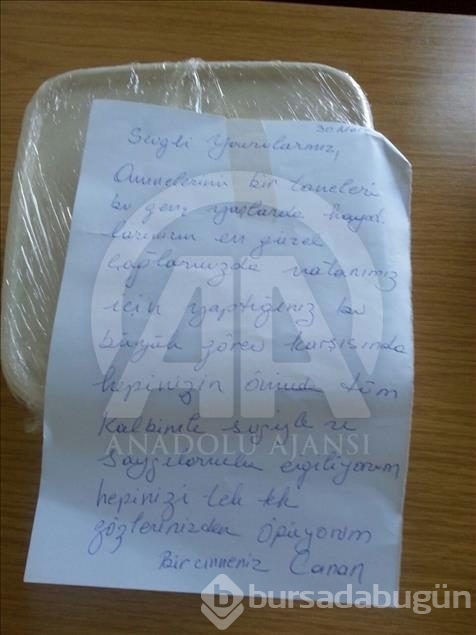 30 Mar
Sevgili Yavrularımız,
Annelerinin bir taneleri
bu genç yaşlarda hayat
larınızın en güzel
çağlarınızda vatanımız
için yaptığınız bu
büyük görev karşısında
hepinizin önünde tüm
Kalbimle sevgiyle ve
Saygılarımla eğiliyorum
hepinizi tek tek
gözlerinizden öpüyorum
Bir anneniz Canan
AA
ANADOLU AJANSI
b bursadabugün